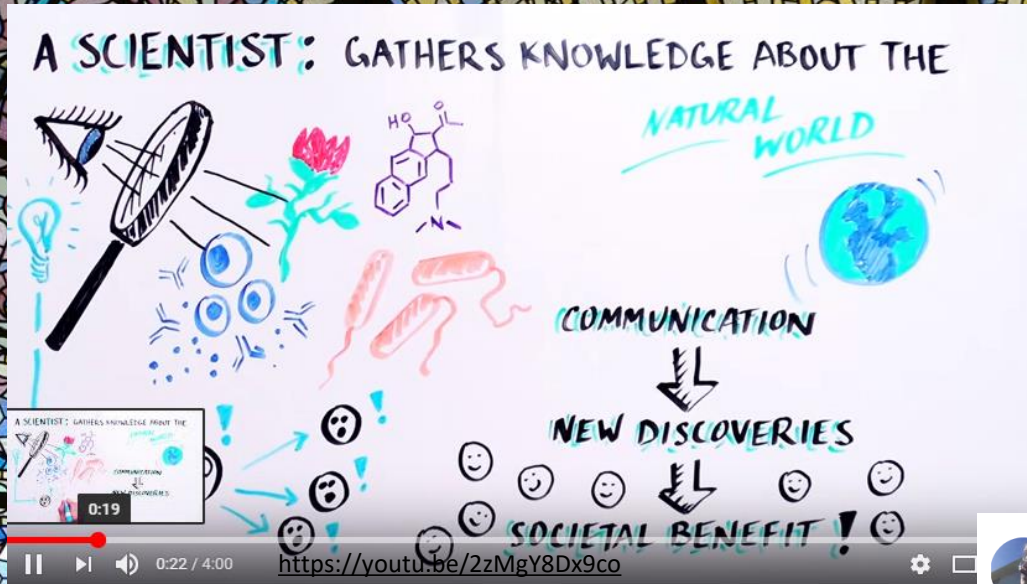 A SCIENTIST: GATHERS KNOWLEDGE ABOUT THE
NATURAL
WORLD
HO
O
N
COMMUNICATION
NEW DISCOVERIES
SOCIETAL BENEFIT!
A SCIENTIST: GATHERS KNOWLEDGE ABOUT THE
NATURAL
WORLD
COMMUNICATION
NEW DISCOVERIES
0:19
0:22 / 4:00
https://youtu.be/2zMgY8Dx9co